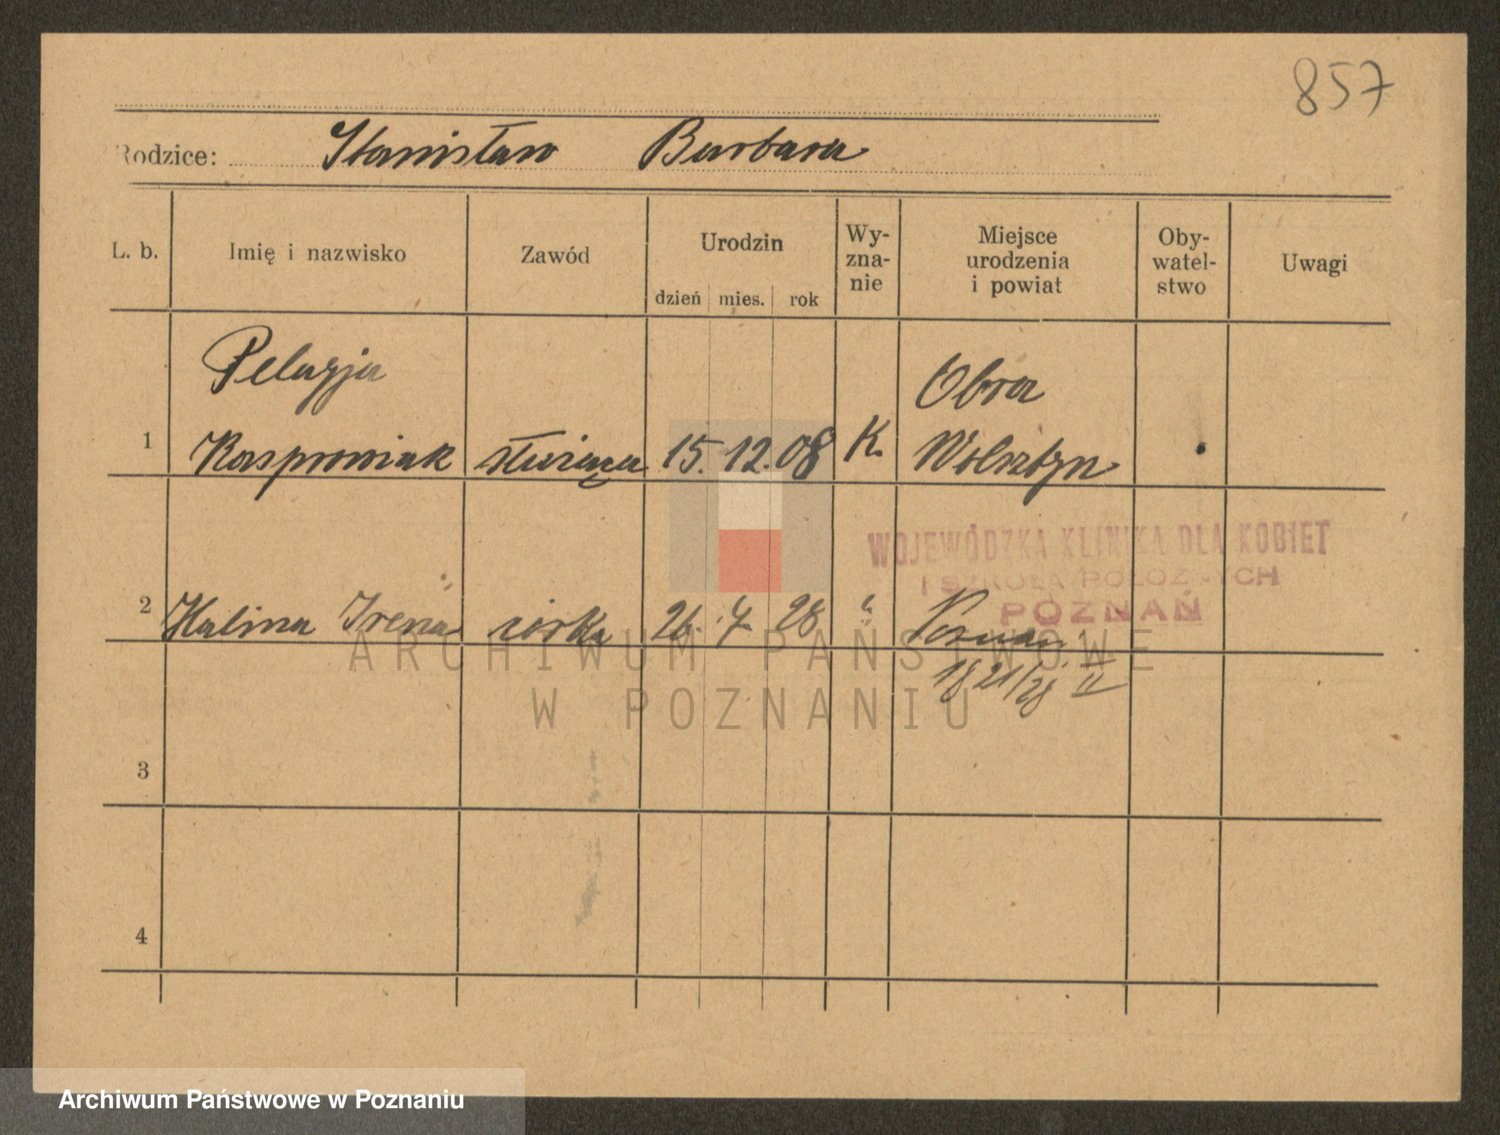 857
Rodzice: Stanisław Barbara
L. b. Imię i nazwisko Zawód Urodzin dzień mies. rok Wy-zna-nie Miejsce urodzenia i powiat Oby-watel-stwo Uwagi
Pelagja Obra
1 Kasprowiak służąca 15. 12. 08 K. Wolsztyn
WOJEWÓDZKA KLINIKA DLA KOBIET
I SZKOŁA POŁOŻNYCH
POZNAŃ
2 Halina Irena córka 26. 28 " Poznań
1821/28 II
3
4
ARCHIWUM PAŃSTWOWE
W POZNANIU
Archiwum Państwowe w Poznaniu